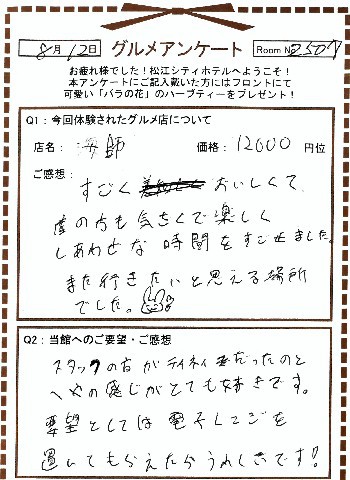 8月12日 グルメアンケート Room No 2507
お疲れ様でした！松江シティホテルへようこそ！
本アンケートにご記入戴いた方にはフロントにて
可愛い「バラの花」のハーブティーをプレゼント！
Q1：今回体験されたグルメ店について
店名： 海師 価格： 12000 円位
ご感想：
すごく おいしくて、
店の方も気さくで楽しく
しあわせな時間をすごせました。
また行きたいと思える場所
でした。
Q2：当館へのご要望・ご感想
スタッフの方がテイネイだったのと
へやの感じがとても好きです。
要望としては電子レンジを
置いてもらえたらうれしいです！